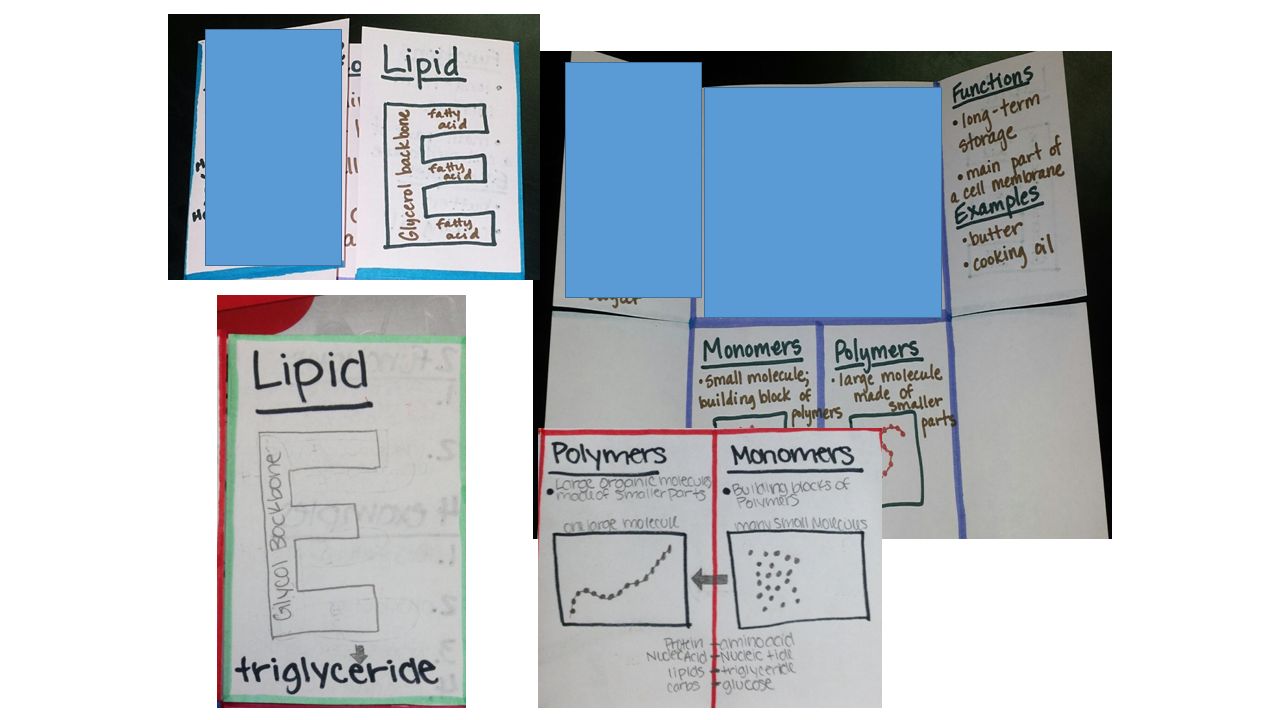 Lipid
Glycerol backbone
fatty
acid
fatty
acid
fatty
acid
Functions
• long-term
storage
• main part of
a cell membrane
Examples
• butter
• cooking oil
Monomers
• small molecule;
building block of
polymers
Polymers
• large molecule
made of
smaller
parts
Lipid
Glycol Backbone
triglyceride
Polymers
• Large organic molecules
made of smaller parts
one large molecule
Monomers
• Building blocks of
Polymers
many small Molecules
Protein - aminoacid
NucleicAcid - Nucleic tide
lipids - triglyceride
carbs - glucose